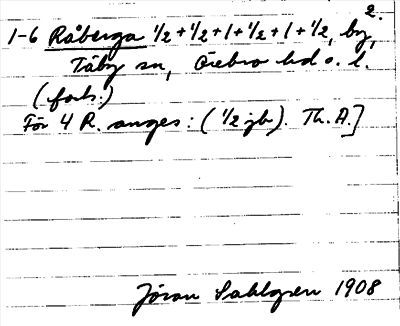 2.
1-6 Råberga 1/2+1/2+1+1/2+1+1/2, by,
Täby sn, Örebro hd o. l.
(forts.)
För 4 R. anges: (1/2 jb). Th. A.]
Jöran Sahlgren 1908